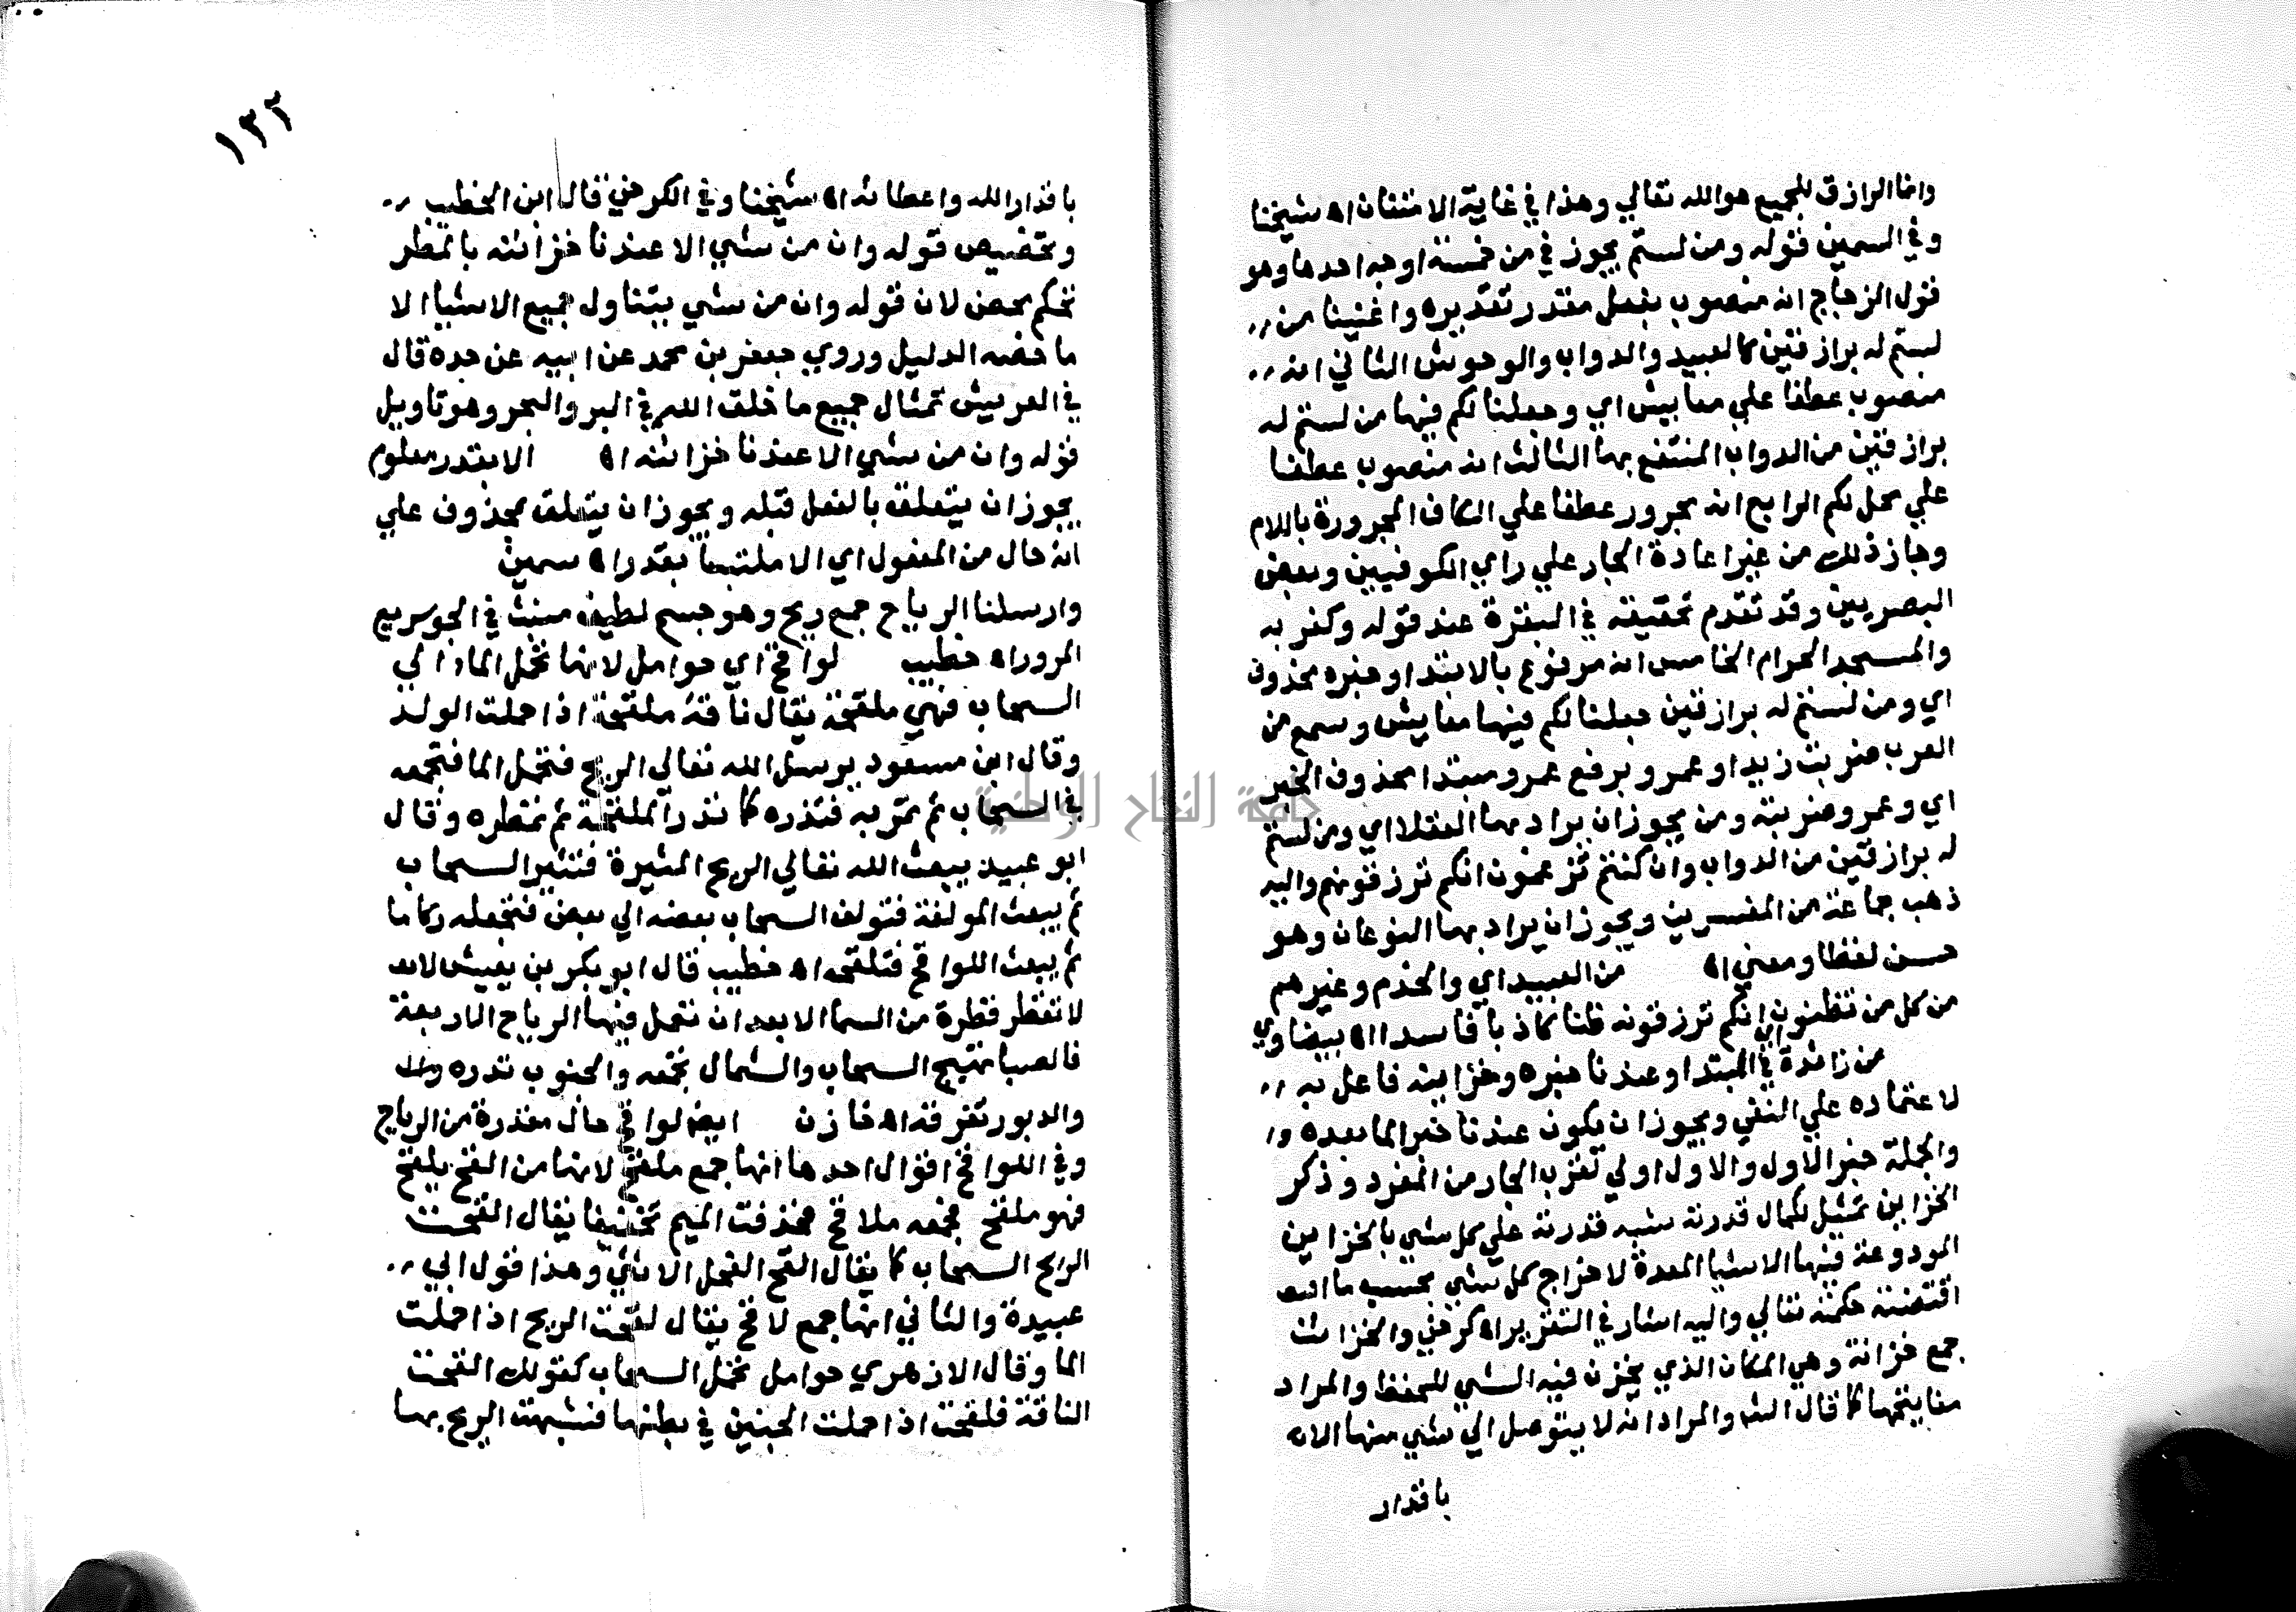 وانما الرازق للجميع هو الله تعالي وهذا في غاية الامتنان اه شيخنا
وفي السمين قوله ومن لستم يجوز في من خمسة اوجه احدها وهو
قول الزجاج انه منصوب بفعل مقدر تقديره واغنينا من
لستم له برازقين كالعبيد والدواب والوحوش الثاني انه
منصوب عطفا علي معايش اي وجعلنا لكم فيها من لستم له
برازقين من الدواب المنتفع بها الثالث انه منصوب عطفا
علي محل لكم الرابع انه مجرور عطفا علي الكاف المجرورة باللام
وجاز ذلك من غير اعادة الجار علي راي الكوفيين وبعض
البصريين وقد تقدم تحقيقه في البقرة عند قوله وكفر به
والمسجد الحرام الخامس انه مرفوع بالابتدا وخبره محذوف
اي ومن لستم له برازقين جعلنا لكم فيها معايش وسمع من
العرب ضربت زيدا وعمرو برفع عمرو مبتدا محذوف الخبر
اي وعمرو ضربته ومن يجوز ان يراد بها العقلا اي ومن لستم
له برازقين من الدواب وان كنتم تزعمون انكم ترزقونهم واليه
ذهب جماعة من المفسرين ويجوز ان يراد بها النوعان وهو
حسن لفظا ومعني اه من العبيد اي والخدم وغيرهم
من كل من تظنون انكم ترزقونه ظنا كاذبا فاسدا اه بيضاوي
من زائدة في المبتدا وعندنا خبره وخزاينه فاعل به
لاعتماده علي النفي ويجوز ان يكون عندنا خبرا لما بعده
والجملة خبر الاول والاول اولي لقرب الجار من المفرد وذكر
الخزاين تمثيل لكمال قدرته شبه قدرته علي كل شي بالخزاين
المودوعة فيها الاشيا المعدة لاخراج كل شي بحسب ما
اقتضته حكمته تعالي واليه اشار في التقرير اه كرخي والخزائن
جمع خزانة وهي المكان الذي يخزن فيه الشي للحفظ والمراد
مفاتيحها كما قال الشه والمراد انه لا يتوصل الي شي منها الا
باقدار
١٣٢
باقدار الله واعطائه اه شيخنا وفي الكرخي قال ابن الخطيب
وتخصيص قوله وان من شي الا عندنا خزائنه بالمطر
تحكم محض لان قوله وان من شي يتناول جميع الاشيا الا
ما خصه الدليل وروي جعفر بن محمد عن ابيه عن جده قال
في العرش تمثال جميع ما خلق الله في البر والبحر وهو تاويل
قوله وان من شي الا عندنا خزائنه اه الا بقدر معلوم
يجوز ان يتعلق بالفعل قبله ويجوز ان يتعلق بمحذوف علي
انه حال من المفعول اي الا ملتبسا بقدر اه سمين
وارسلنا الرياح جمع ريح وهو جسم لطيف منبث في الجو سريع
المرور اه خطيب لواقح اي حوامل لانها تحمل الماء الي
السحاب فهي ملقحة يقال ناقة ملقحة اذا حملت الولد
وقال ابن مسعود يرسل الله تعالي الريح فتحمل الما فتجمعه
في السحاب ثم تمر به فتدره كما تدر الملقحة ثم تمطره وقال
ابو عبيد يبعث الله تعالي الريح المثيرة فتثير السحاب
ثم يبعث المولفة فتولف السحاب بعضه الي بعض فتجعله ركاما
ثم يبعث اللواقح فتلقحه اه خطيب قال ابو بكر بن يعيش
لا تقطر قطرة من السما الا بعد ان تعمل فيها الرياح الاربعة
فالصبا تهيج السحاب والشمال تجمعه والجنوب تدره
والدبور تفرقه اه خازن ايضا لواقح حال مقدرة من الرياح
وفي اللواقح اقوال احدها انها جمع ملقح لانها من القح يلقح
فهو ملقح فجمعه ملاقح فحذفت الميم تخفيفا يقال القحت
الريح السحاب كما يقال القح الفحل الانثي وهذا قول ابي
عبيدة والثاني انها جمع لاقح يقال لقحت الريح اذا حملت
الما وقال الازهري حوامل تحمل السحاب كقولك القحت
الناقة فلقحت اذا حملت الجنين في بطنها فشبهت الريح بها
جامعة النجاح الوطنية